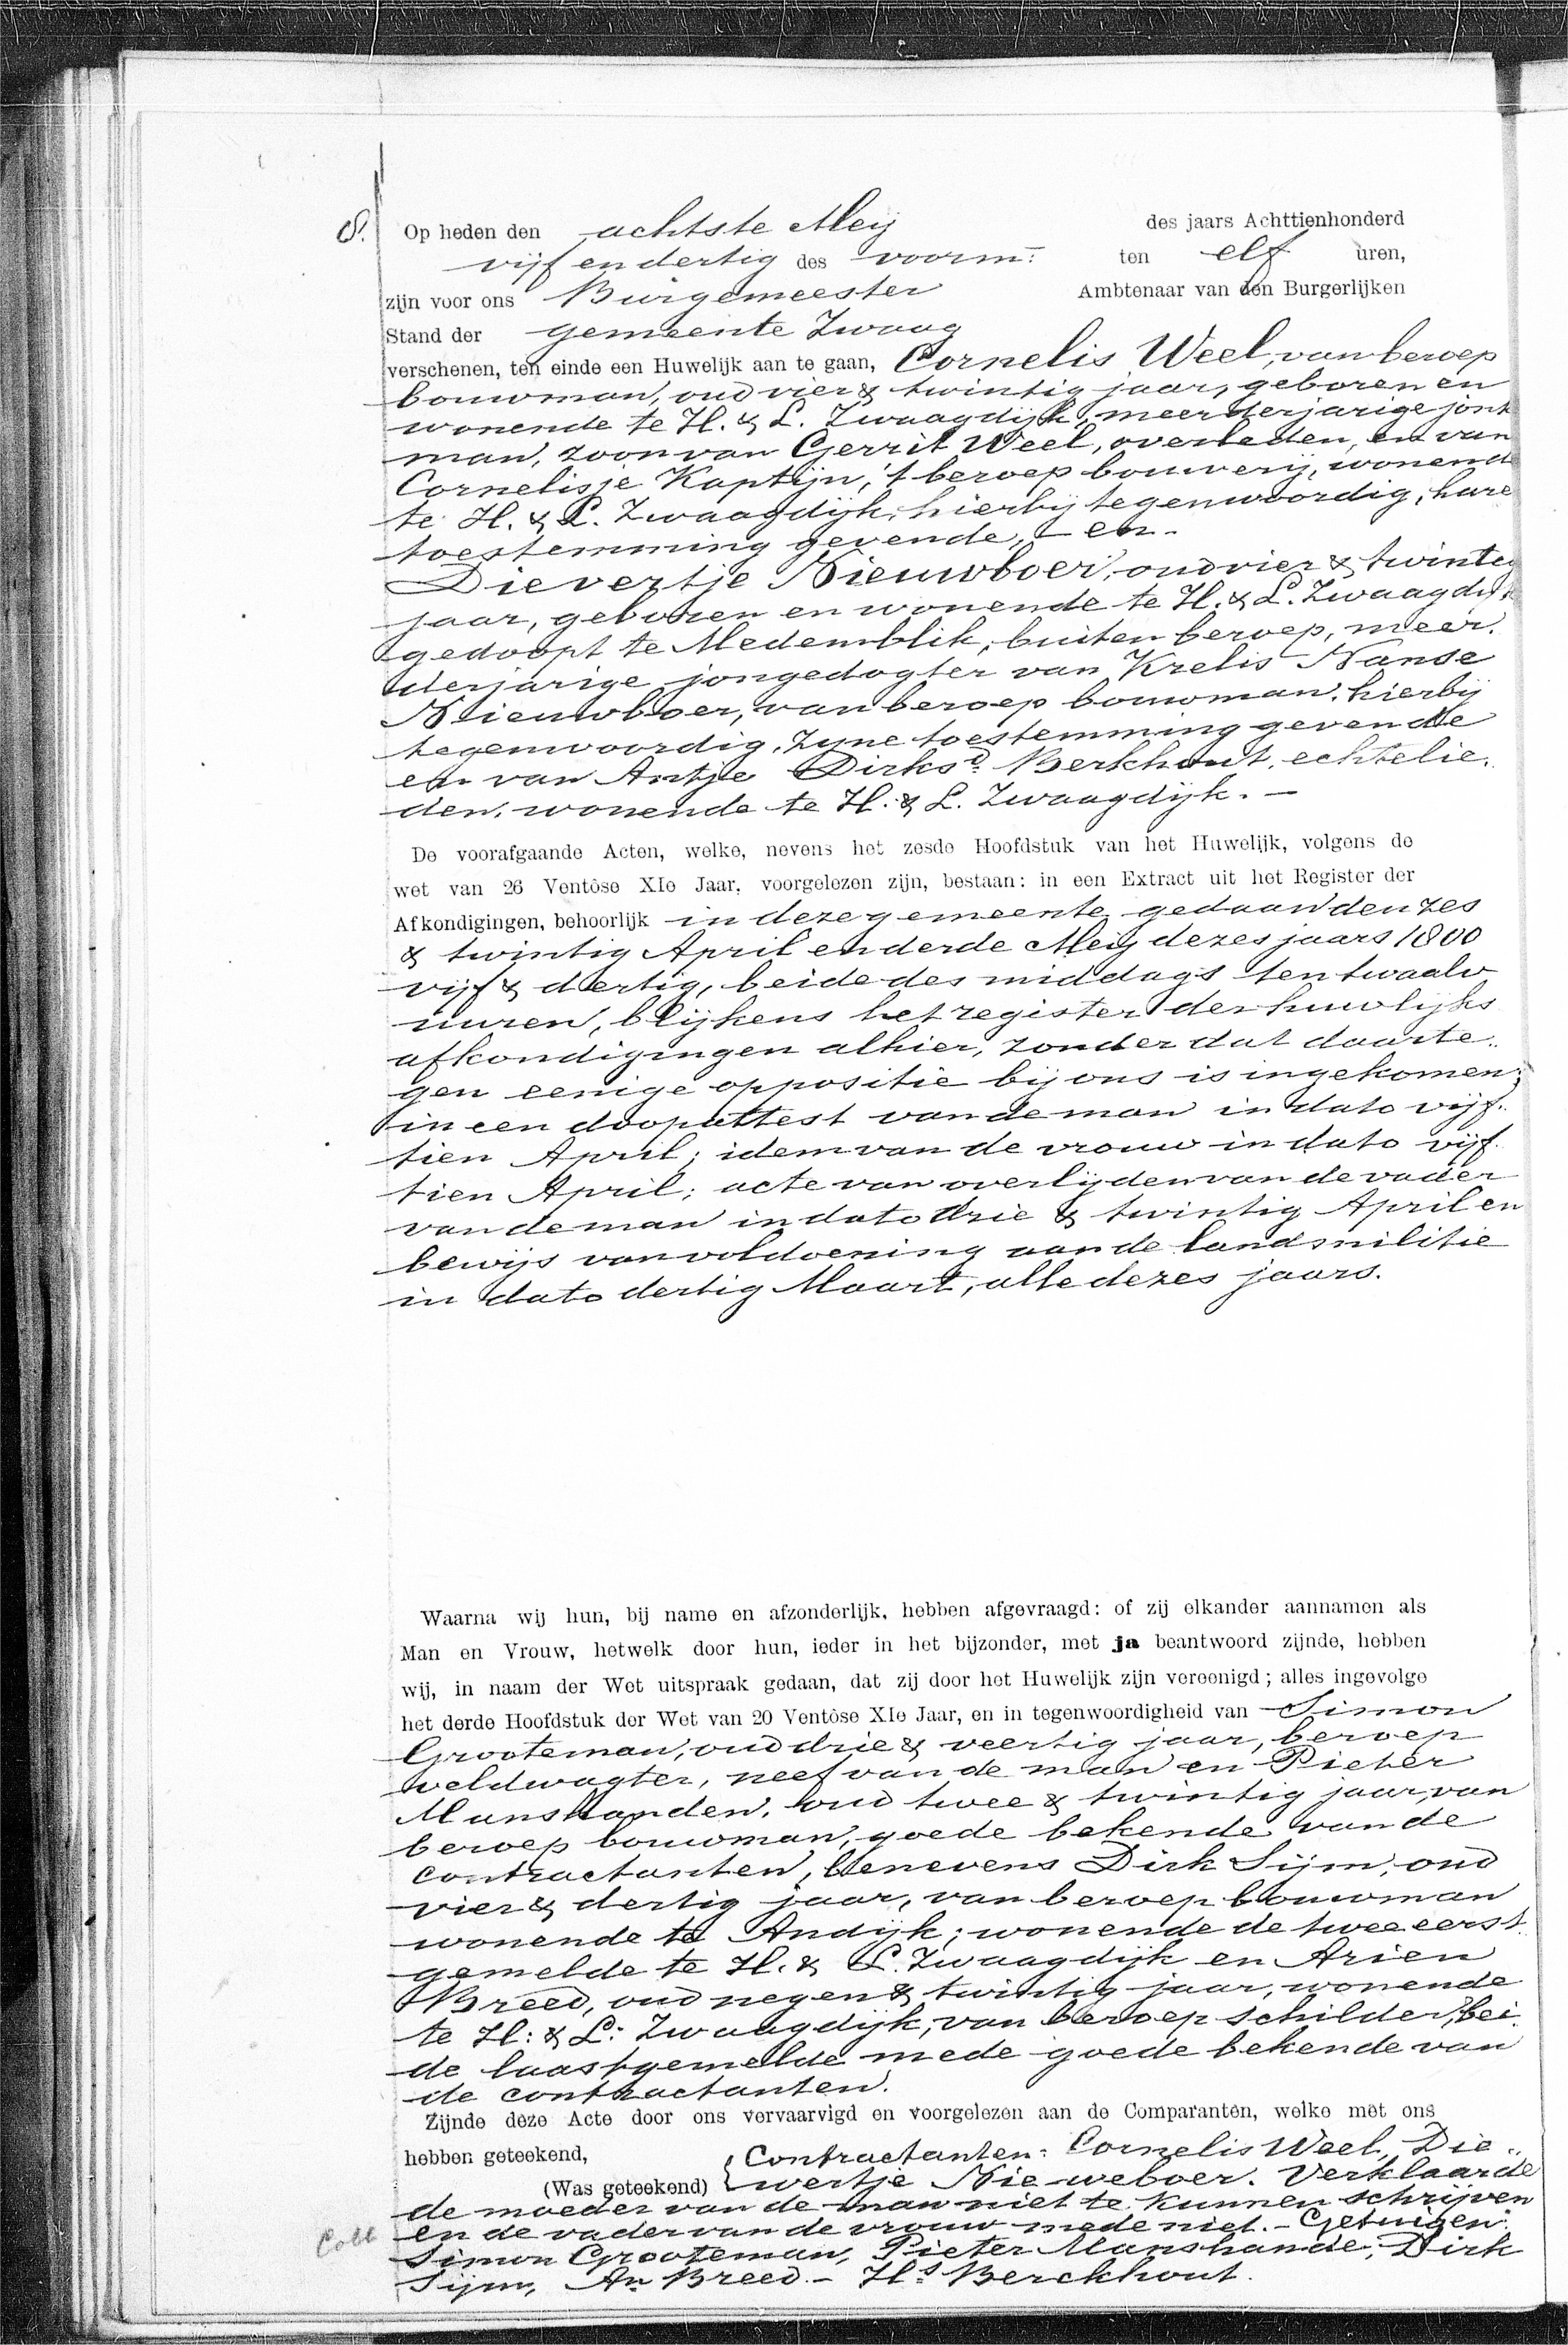 8. Op heden den achtste Meij des jaars Achttienhonderd
vijf en dertig des voorm: ten elf uren,
zijn voor ons Burgemeester Ambtenaar van den Burgerlijken
Stand der gemeente Zwaag
verschenen, ten einde een Huwelijk aan te gaan, Cornelis Weel, van beroep
bouwman, oud vier & twintig jaar, geboren en
wonende te H. & L. Zwaagdijk, meerderjarige jonk
man, zoon van Gerrit Weel, overleden, en van
Cornelisje Kaptijn, 't beroep bouwerij, wonende
te H. & L. Zwaagdijk, hierbij tegenwoordig, hare
toestemming gevende, – en –
Dievertje Nieuwboer, oud vier & twintig
jaar, geboren en wonende te H. & L. Zwaagdijk
gedoopt te Medemblik, buiten beroep, meer.
derjarige jongedogter van Krelis Nanse
Nieuwboer, van beroep bouwman, hierbij
tegenwoordig, zyne toestemming gevende
en van Antje Dirksd: Berkhout, echtelie.
den, wonende te H. & L. Zwaagdijk. –
De voorafgaande Acten, welke, nevens het zesde Hoofdstuk van het Huwelijk, volgens de
wet van 26 Ventôse XIe Jaar, voorgelezen zijn, bestaan: in een Extract uit het Register der
Afkondigingen, behoorlijk in deze gemeente gedaan den zes
& twintig April en derde Meij dezes jaars 1800
vijf & dertig, beide des middags ten twaalv
uuren, blijkens het register der huwlijks
afkondigingen alhier, zonder dat daarte..
gen eenige oppositie bij ons is ingekomen;
in een doopattest van de man in dato vijf..
tien April; idem van de vrouw in dato vijf.
tien April; acte van overlijden van de vader
van de man in dato drie & twintig April en
bewijs van voldoening aan de landsmilitie
in dato dertig Maart, alle dezes jaars.
Waarna wij hun, bij name en afzonderlijk, hebben afgevraagd: of zij elkander aannamen als
Man en Vrouw, hetwelk door hun, ieder in het bijzonder, met ja beantwoord zijnde, hebben
wij, in naam der Wet uitspraak gedaan, dat zij door het Huwelijk zijn vereenigd; alles ingevolge
het derde Hoofdstuk der Wet van 20 Ventôse XIe Jaar, en in tegenwoordigheid van Simon
Grooteman, oud drie & veertig jaar, beroep
veldwagter, neef van de man en Pieter
Manshanden, oud twee & twintig jaar, van
beroep bouwman, goede bekende van de
contractanten, benevens Dirk Sijm, oud
vier & dertig jaar, van beroep bouwman
wonende te Andijk; wonende de twee eerst.
gemelde te H. & L. Zwaagdijk en Arien
Breed, oud negen & twintig jaar, wonende
te H: & L: Zwaagdijk, van beroep schilder, bei.
de laastgemelde mede goede bekende van
de contractanten.
Zijnde deze Acte door ons vervaarvigd en voorgelezen aan de Comparanten, welke met ons
hebben geteekend, Contractanten: Cornelis Weel, Die..
(Was geteekend) wertje Nieweboer. Verklaarde
de moeder van de man niet te kunnen schrijven
en de vader van de vrouw mede niet. – Getuigen:
Coll Simon Grooteman, Pieter Manshande, Dirk
Sijm, An Breed. – Hs Berckhout.